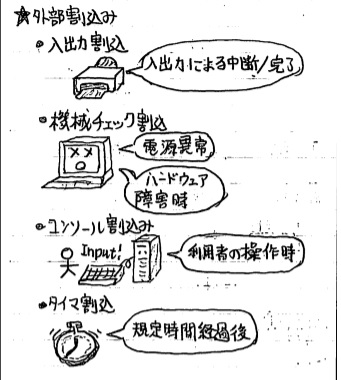 ☆外部割込み
・入出力割込
入出力による中断/完了
・機械チェック割込
電源異常
ハードウェア
障害時
・コンソール割込み
Input!
利用者の操作時
・タイマ割込
規定時間経過後